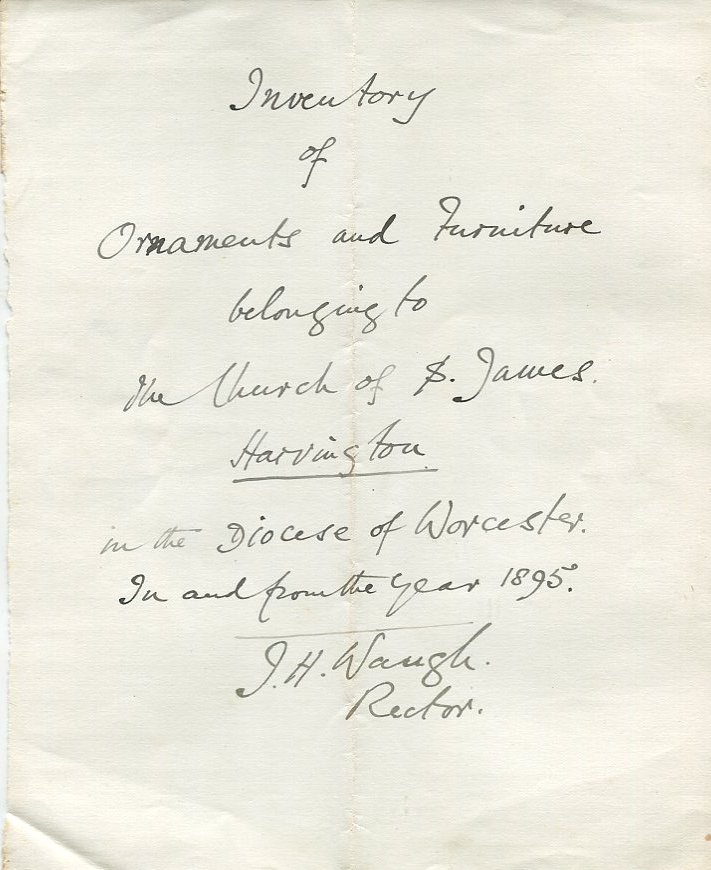 Inventory
of
Ornaments and Furniture
belonging to
the Church of S. James.
Harvington.
in the Diocese of Worcester.
In and from the Year 1895.
J. H. Waugh.
Rector.